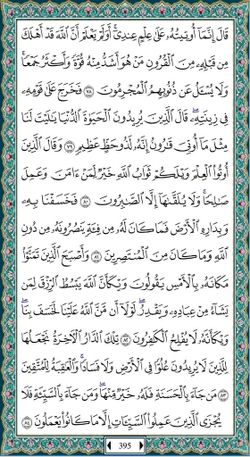 قَالَ إِنَّمَآ أُوتِيتُهُۥ عَلَىٰ عِلْمٍ عِندِىٓ ۚ أَوَلَمْ يَعْلَمْ أَنَّ ٱللَّهَ قَدْ أَهْلَكَ
مِن قَبْلِهِۦ مِنَ ٱلْقُرُونِ مَنْ هُوَ أَشَدُّ مِنْهُ قُوَّةً وَأَكْثَرُ جَمْعًا ۚ
وَلَا يُسْـَٔلُ عَن ذُنُوبِهِمُ ٱلْمُجْرِمُونَ ٧٨ فَخَرَجَ عَلَىٰ قَوْمِهِۦ
فِى زِينَتِهِۦ ۖ قَالَ ٱلَّذِينَ يُرِيدُونَ ٱلْحَيَوٰةَ ٱلدُّنْيَا يَٰلَيْتَ لَنَا
مِثْلَ مَآ أُوتِىَ قَٰرُونُ إِنَّهُۥ لَذُو حَظٍّ عَظِيمٍ ٧٩ وَقَالَ ٱلَّذِينَ
أُوتُوا۟ ٱلْعِلْمَ وَيْلَكُمْ ثَوَابُ ٱللَّهِ خَيْرٌ لِّمَنْ ءَامَنَ وَعَمِلَ
صَٰلِحًا وَلَا يُلَقَّىٰهَآ إِلَّا ٱلصَّٰبِرُونَ ٨٠ فَخَسَفْنَا بِهِۦ
وَبِدَارِهِ ٱلْأَرْضَ فَمَا كَانَ لَهُۥ مِن فِئَةٍ يَنصُرُونَهُۥ مِن دُونِ
ٱللَّهِ وَمَا كَانَ مِنَ ٱلْمُنتَصِرِينَ ٨١ وَأَصْبَحَ ٱلَّذِينَ تَمَنَّوْا۟
مَكَانَهُۥ بِٱلْأَمْسِ يَقُولُونَ وَيْكَأَنَّ ٱللَّهَ يَبْسُطُ ٱلرِّزْقَ لِمَن
يَشَآءُ مِنْ عِبَادِهِۦ وَيَقْدِرُ ۖ لَوْلَآ أَن مَّنَّ ٱللَّهُ عَلَيْنَا لَخَسَفَ بِنَا ۖ
وَيْكَأَنَّهُۥ لَا يُفْلِحُ ٱلْكَٰفِرُونَ ٨٢ تِلْكَ ٱلدَّارُ ٱلْءَاخِرَةُ نَجْعَلُهَا
لِلَّذِينَ لَا يُرِيدُونَ عُلُوًّا فِى ٱلْأَرْضِ وَلَا فَسَادًا ۚ وَٱلْعَٰقِبَةُ لِلْمُتَّقِينَ
٨٣ مَن جَآءَ بِٱلْحَسَنَةِ فَلَهُۥ خَيْرٌ مِّنْهَا ۖ وَمَن جَآءَ بِٱلسَّيِّئَةِ فَلَا
يُجْزَى ٱلَّذِينَ عَمِلُوا۟ ٱلسَّيِّـَٔاتِ إِلَّا مَا كَانُوا۟ يَعْمَلُونَ ٨٤
395